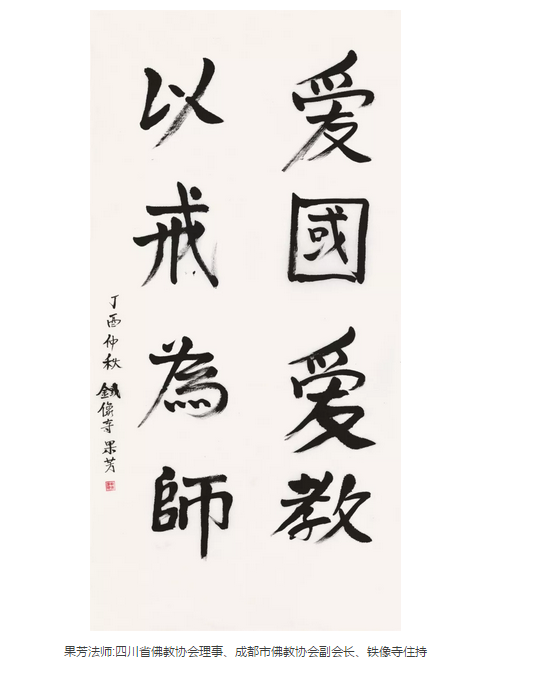 爱國爱教
以戒為師
丁酉仲秋 鐵像寺果芳
果芳法师:四川省佛教协会理事、成都市佛教协会副会长、铁像寺住持